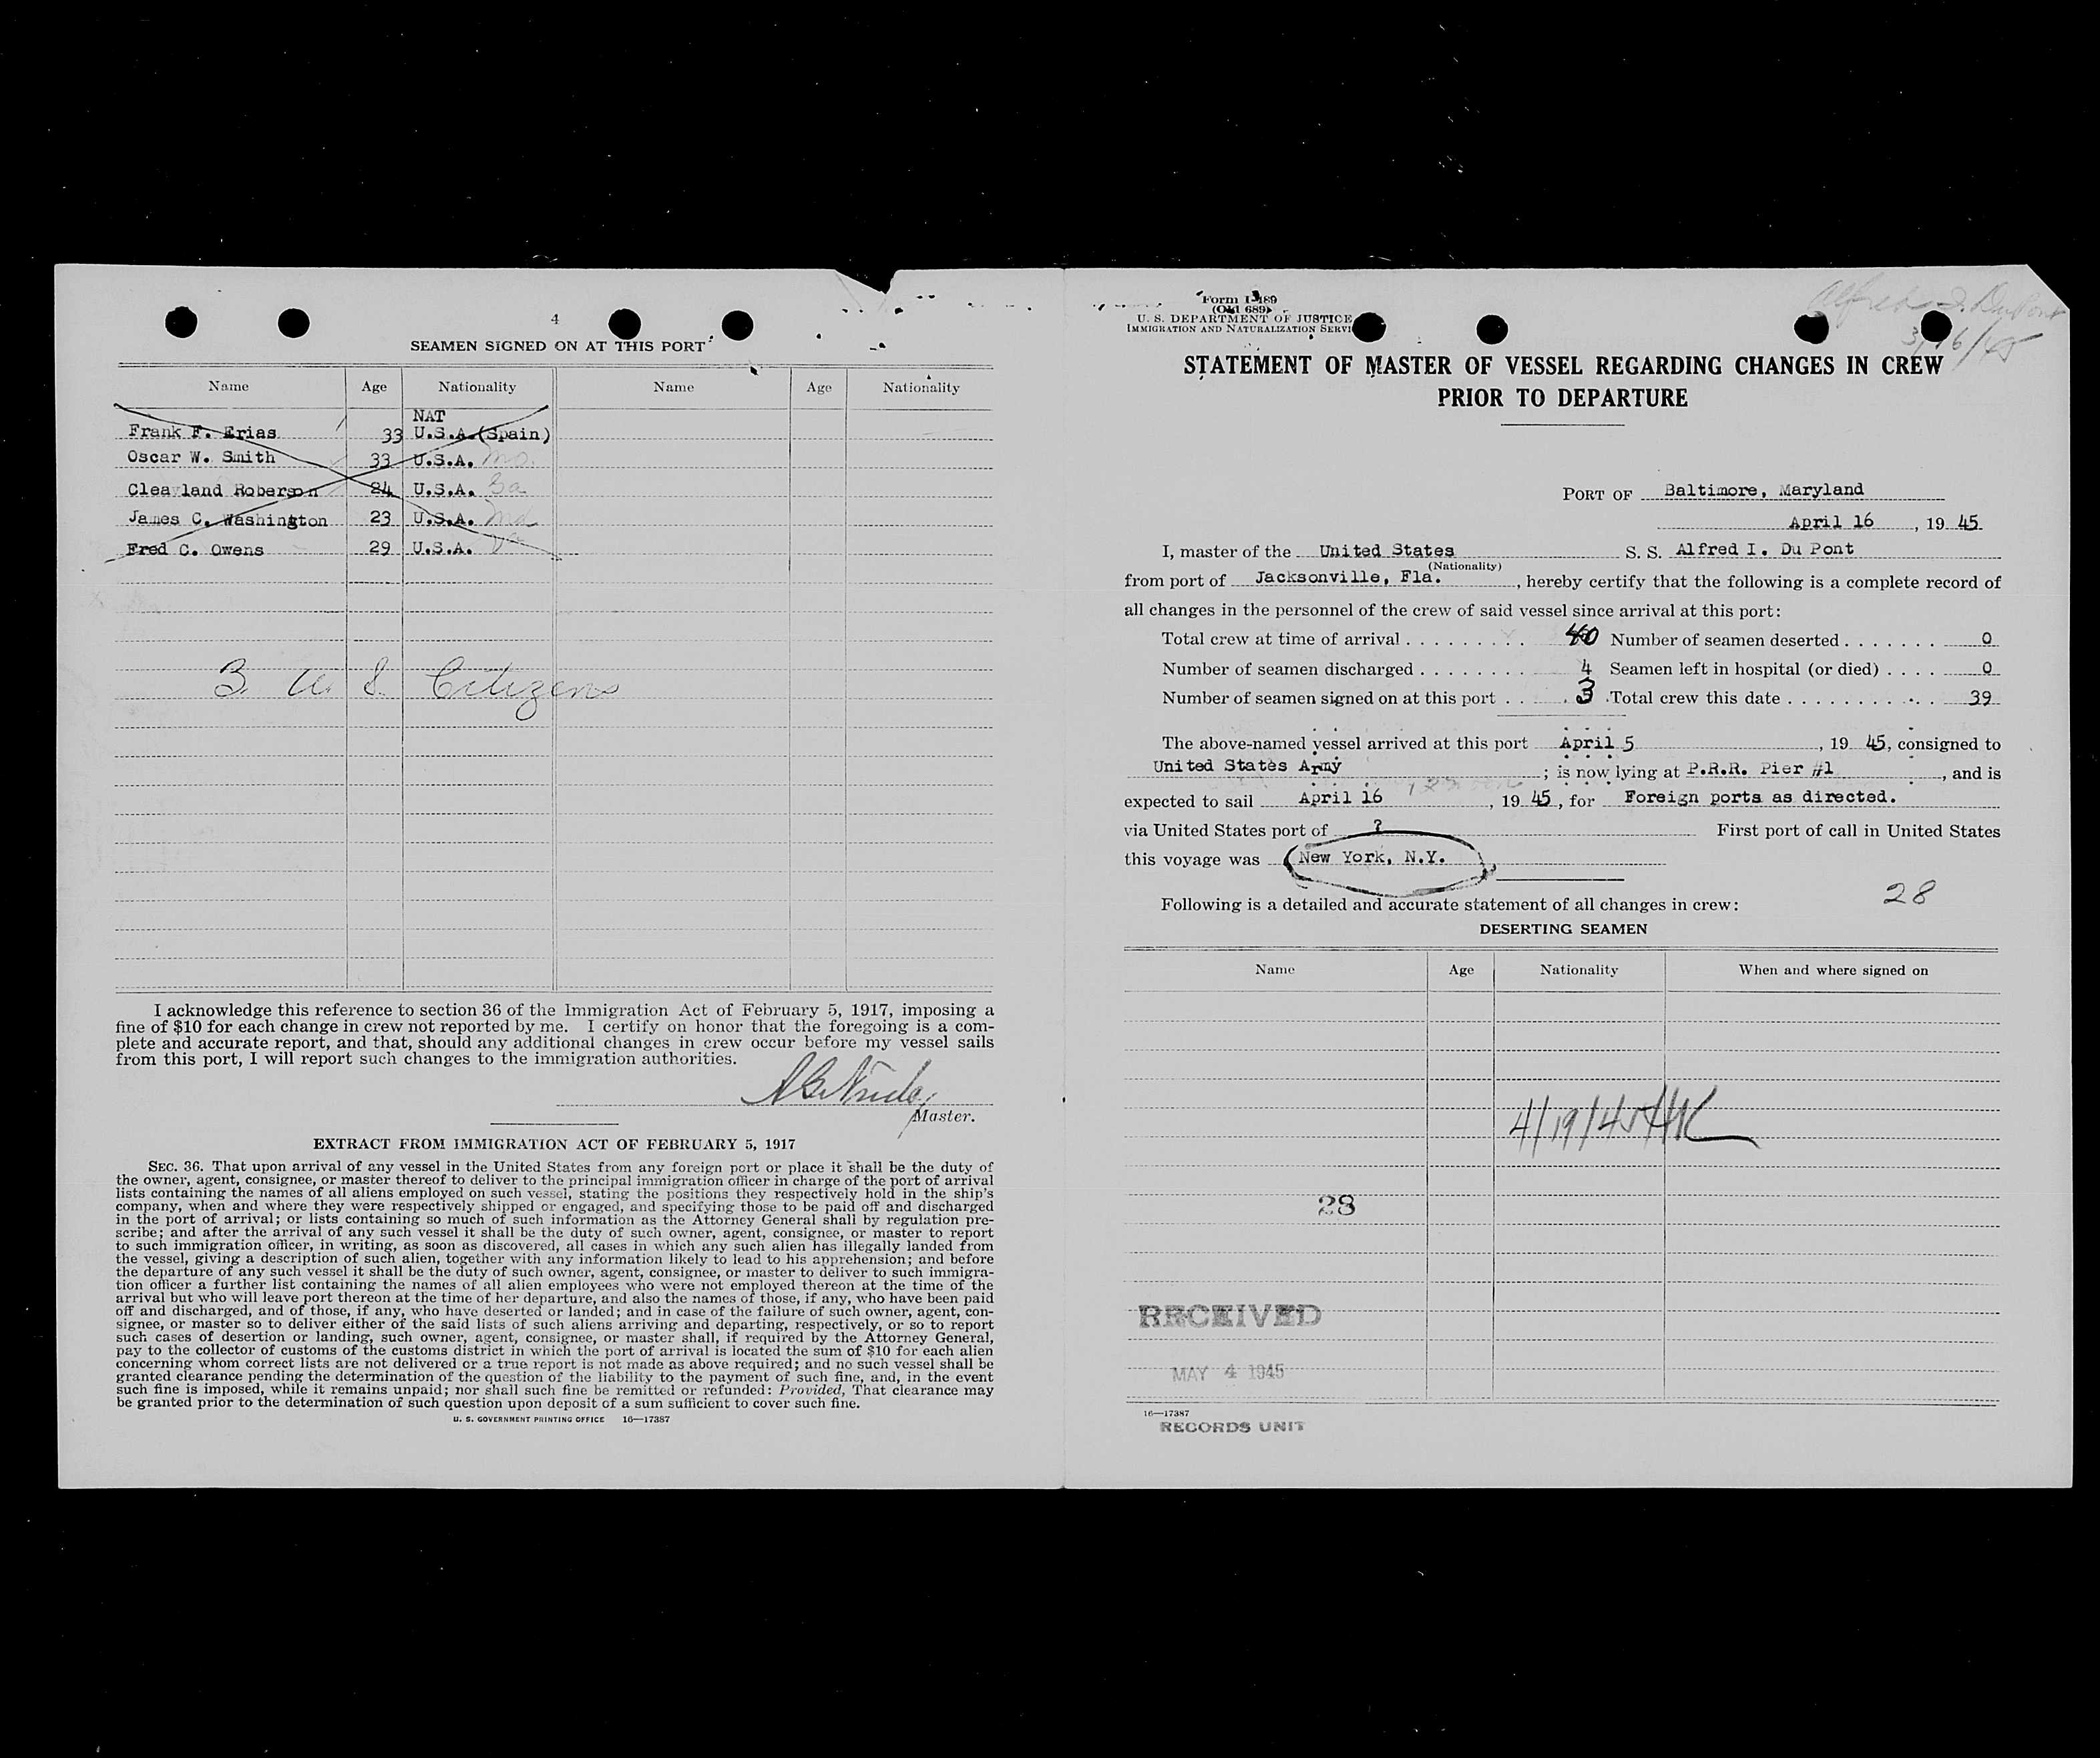 4
SEAMEN SIGNED ON AT THIS PORT
Name Age Nationality Name Age Nationality
NAT
Frank F. Erias 33 U.S.A.(Spain)
Oscar W. Smith 33 U.S.A. Mo.
Clea land Roberson 24 U.S.A. Ga
James C. Washington 23 U.S.A. Md
Fred C. Owens 29 U.S.A. Va
3 U. S. Citizens
I acknowledge this reference to section 36 of the Immigration Act of February 5, 1917, imposing a
fine of $10 for each change in crew not reported by me. I certify on honor that the foregoing is a com-
plete and accurate report, and that, should any additional changes in crew occur before my vessel sails
from this port, I will report such changes to the immigration authorities.
Master.
EXTRACT FROM IMMIGRATION ACT OF FEBRUARY 5, 1917
SEC. 36. That upon arrival of any vessel in the United States from any foreign port or place it shall be the duty of
the owner, agent, consignee, or master thereof to deliver to the principal immigration officer in charge of the port of arrival
lists containing the names of all aliens employed on such vessel, stating the positions they respectively hold in the ship's
company, when and where they were respectively shipped or engaged, and specifying those to be paid off and discharged
in the port of arrival; or lists containing so much of such information as the Attorney General shall by regulation pre-
scribe; and after the arrival of any such vessel it shall be the duty of such owner, agent, consignee, or master to report
to such immigration officer, in writing, as soon as discovered, all cases in which any such alien has illegally landed from
the vessel, giving a description of such alien, together with any information likely to lead to his apprehension; and before
the departure of any such vessel it shall be the duty of such owner, agent, consignee, or master to deliver to such immigra-
tion officer a further list containing the names of all alien employees who were not employed thereon at the time of the
arrival but who will leave port thereon at the time of her departure, and also the names of those, if any, who have been paid
off and discharged, and of those, if any, who have deserted or landed; and in case of the failure of such owner, agent, con-
signee, or master so to deliver either of the said lists of such aliens arriving and departing, respectively, or so to report
such cases of desertion or landing, such owner, agent, consignee, or master shall, if required by the Attorney General,
pay to the collector of customs of the customs district in which the port of arrival is located the sum of $10 for each alien
concerning whom correct lists are not delivered or a true report is not made as above required; and no such vessel shall be
granted clearance pending the determination of the question of the liability to the payment of such fine, and, in the event
such fine is imposed, while it remains unpaid; nor shall such fine be remitted or refunded: Provided, That clearance may
be granted prior to the determination of such question upon deposit of a sum sufficient to cover such fine.
U. S. GOVERNMENT PRINTING OFFICE 16—17387
Form I-489
(Old 689)
U. S. DEPARTMENT OF JUSTICE
IMMIGRATION AND NATURALIZATION SERVI
Alfred I. DuPont
3/16/45
STATEMENT OF MASTER OF VESSEL REGARDING CHANGES IN CREW
PRIOR TO DEPARTURE
PORT OF Baltimore, Maryland
April 16, 19 45
I, master of the United States S. S. Alfred I. Du Pont
(Nationality)
from port of Jacksonville, Fla., hereby certify that the following is a complete record of
all changes in the personnel of the crew of said vessel since arrival at this port:
Total crew at time of arrival 40 Number of seamen deserted 0
Number of seamen discharged 4 Seamen left in hospital (or died) 0
Number of seamen signed on at this port 3 Total crew this date 39
The above-named vessel arrived at this port April 5, 19 45, consigned to
United States Army; is now lying at P.R.R. Pier #1, and is
expected to sail April 16, 19 45, for Foreign ports as directed.
via United States port of ? First port of call in United States
this voyage was New York, N.Y.
28
Following is a detailed and accurate statement of all changes in crew:
DESERTING SEAMEN
Name Age Nationality When and where signed on
4/19/45 HK
28
RECEIVED
MAY 4 1945
16—17387
RECORDS UNIT